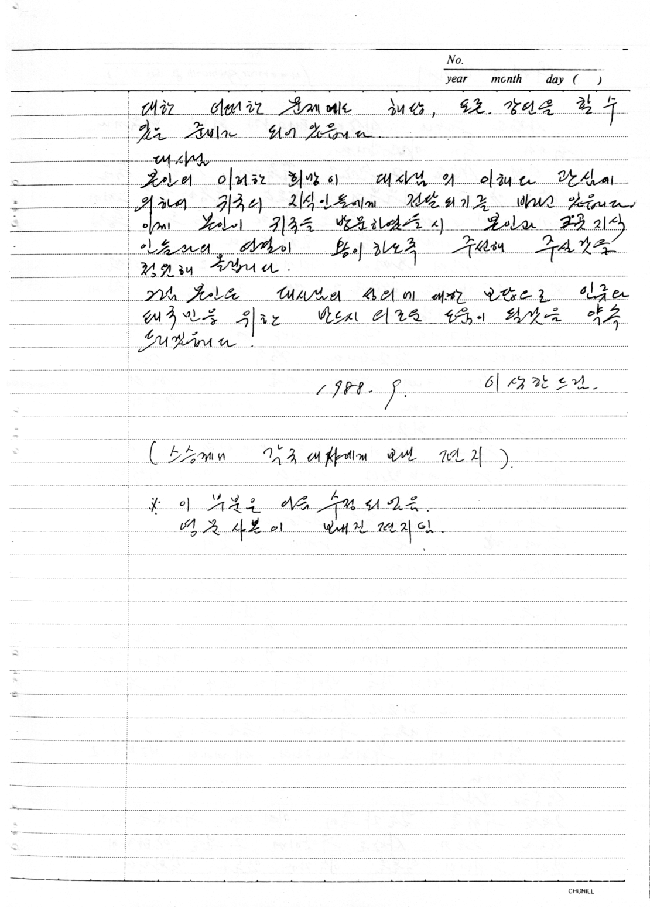 No.
year month day ( )
대한 어떠한 문제에도 해답, 토론. 강연을 할 수
있는 준비가 되어 있읍니다.
대사님
본인의 이러한 희망이 대사님의 이해와 관심에
의하여 귀국의 지식인들에게 전달되기를 바라고 있읍니다
이제 본인이 귀국을 방문하였을시 본인과 귀국 지식
인들과의 연결이 용이하도록 주선해 주실것을
청원해 올립니다.
그럼 본인은 대사님의 성의에 대한 보답으로 인류와
귀국민을 위하는 반드시 의로운 도움이 될것을 약속
드리겠읍니다!
1988. 9. 이상한 드림.
(스승께서 각국대사에게 보낸 편지)
※ 이 부분은 다음 수정되었음.
영문 사본이 보내진 편지임.
CHUNILL